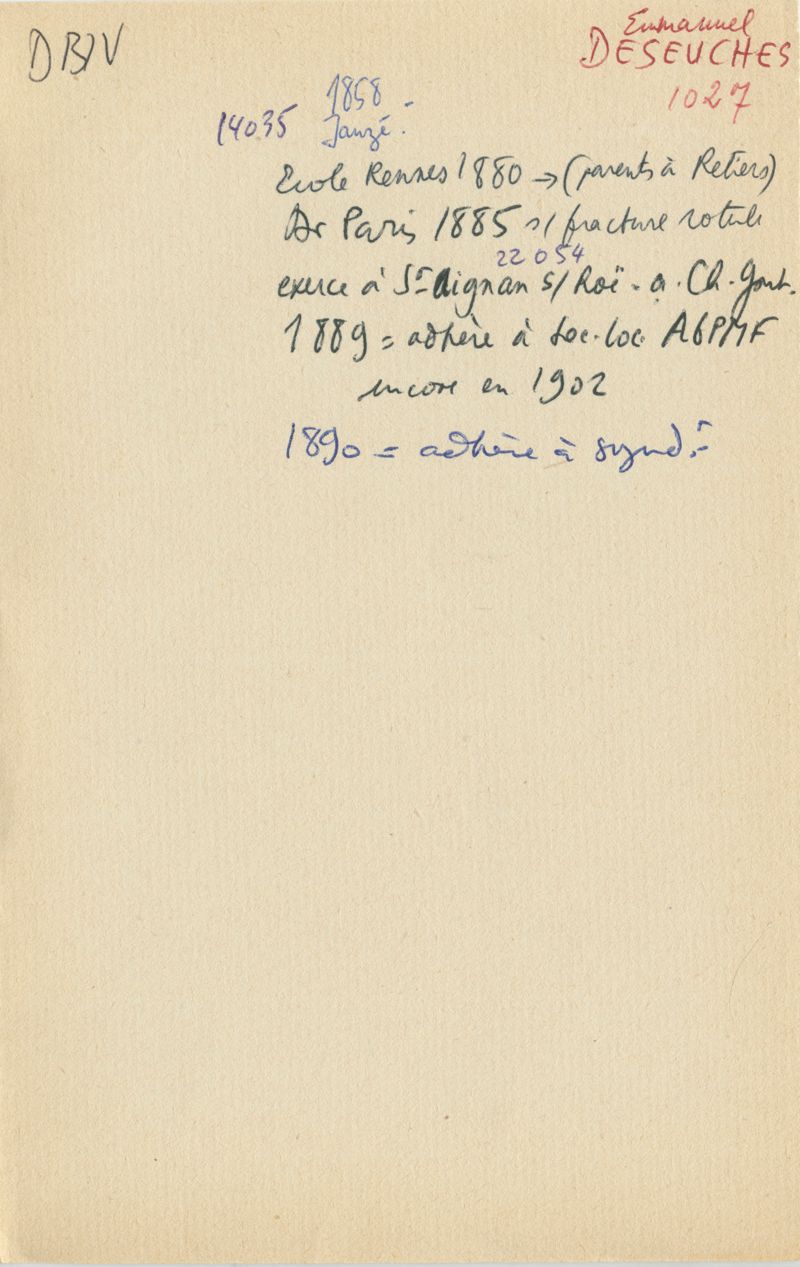 Emmanuel
DESEUCHES
1027
1858 -
14035 Janzé.
Ecole Rennes 1880 → (parents à Retiers)
Dr Paris 1885 s/ fracture rotule
22 054
exerce à St Aignan s/ Roë - a. Ch. Gont.
1889 = adhère à Soc. loc. AGPMF
encore en 1902
1890 = adhère à synd.